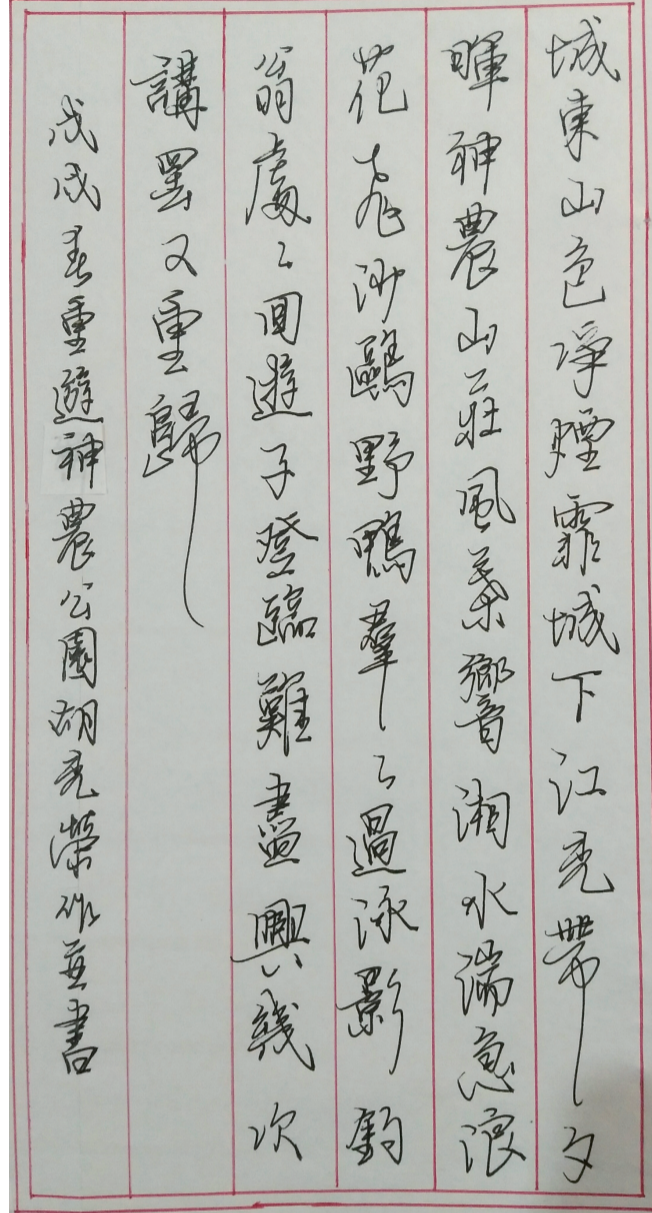 城東山色凈煙霏城下江亮帶夕
暉神農山莊風葉響湘水湍急浪
花飛沙鷗野鴨羣々過泳影釣
翁處々回遊子登臨難盡興幾次
講罢又重歸
戊戌春重遊神農公園胡亮榮作並書